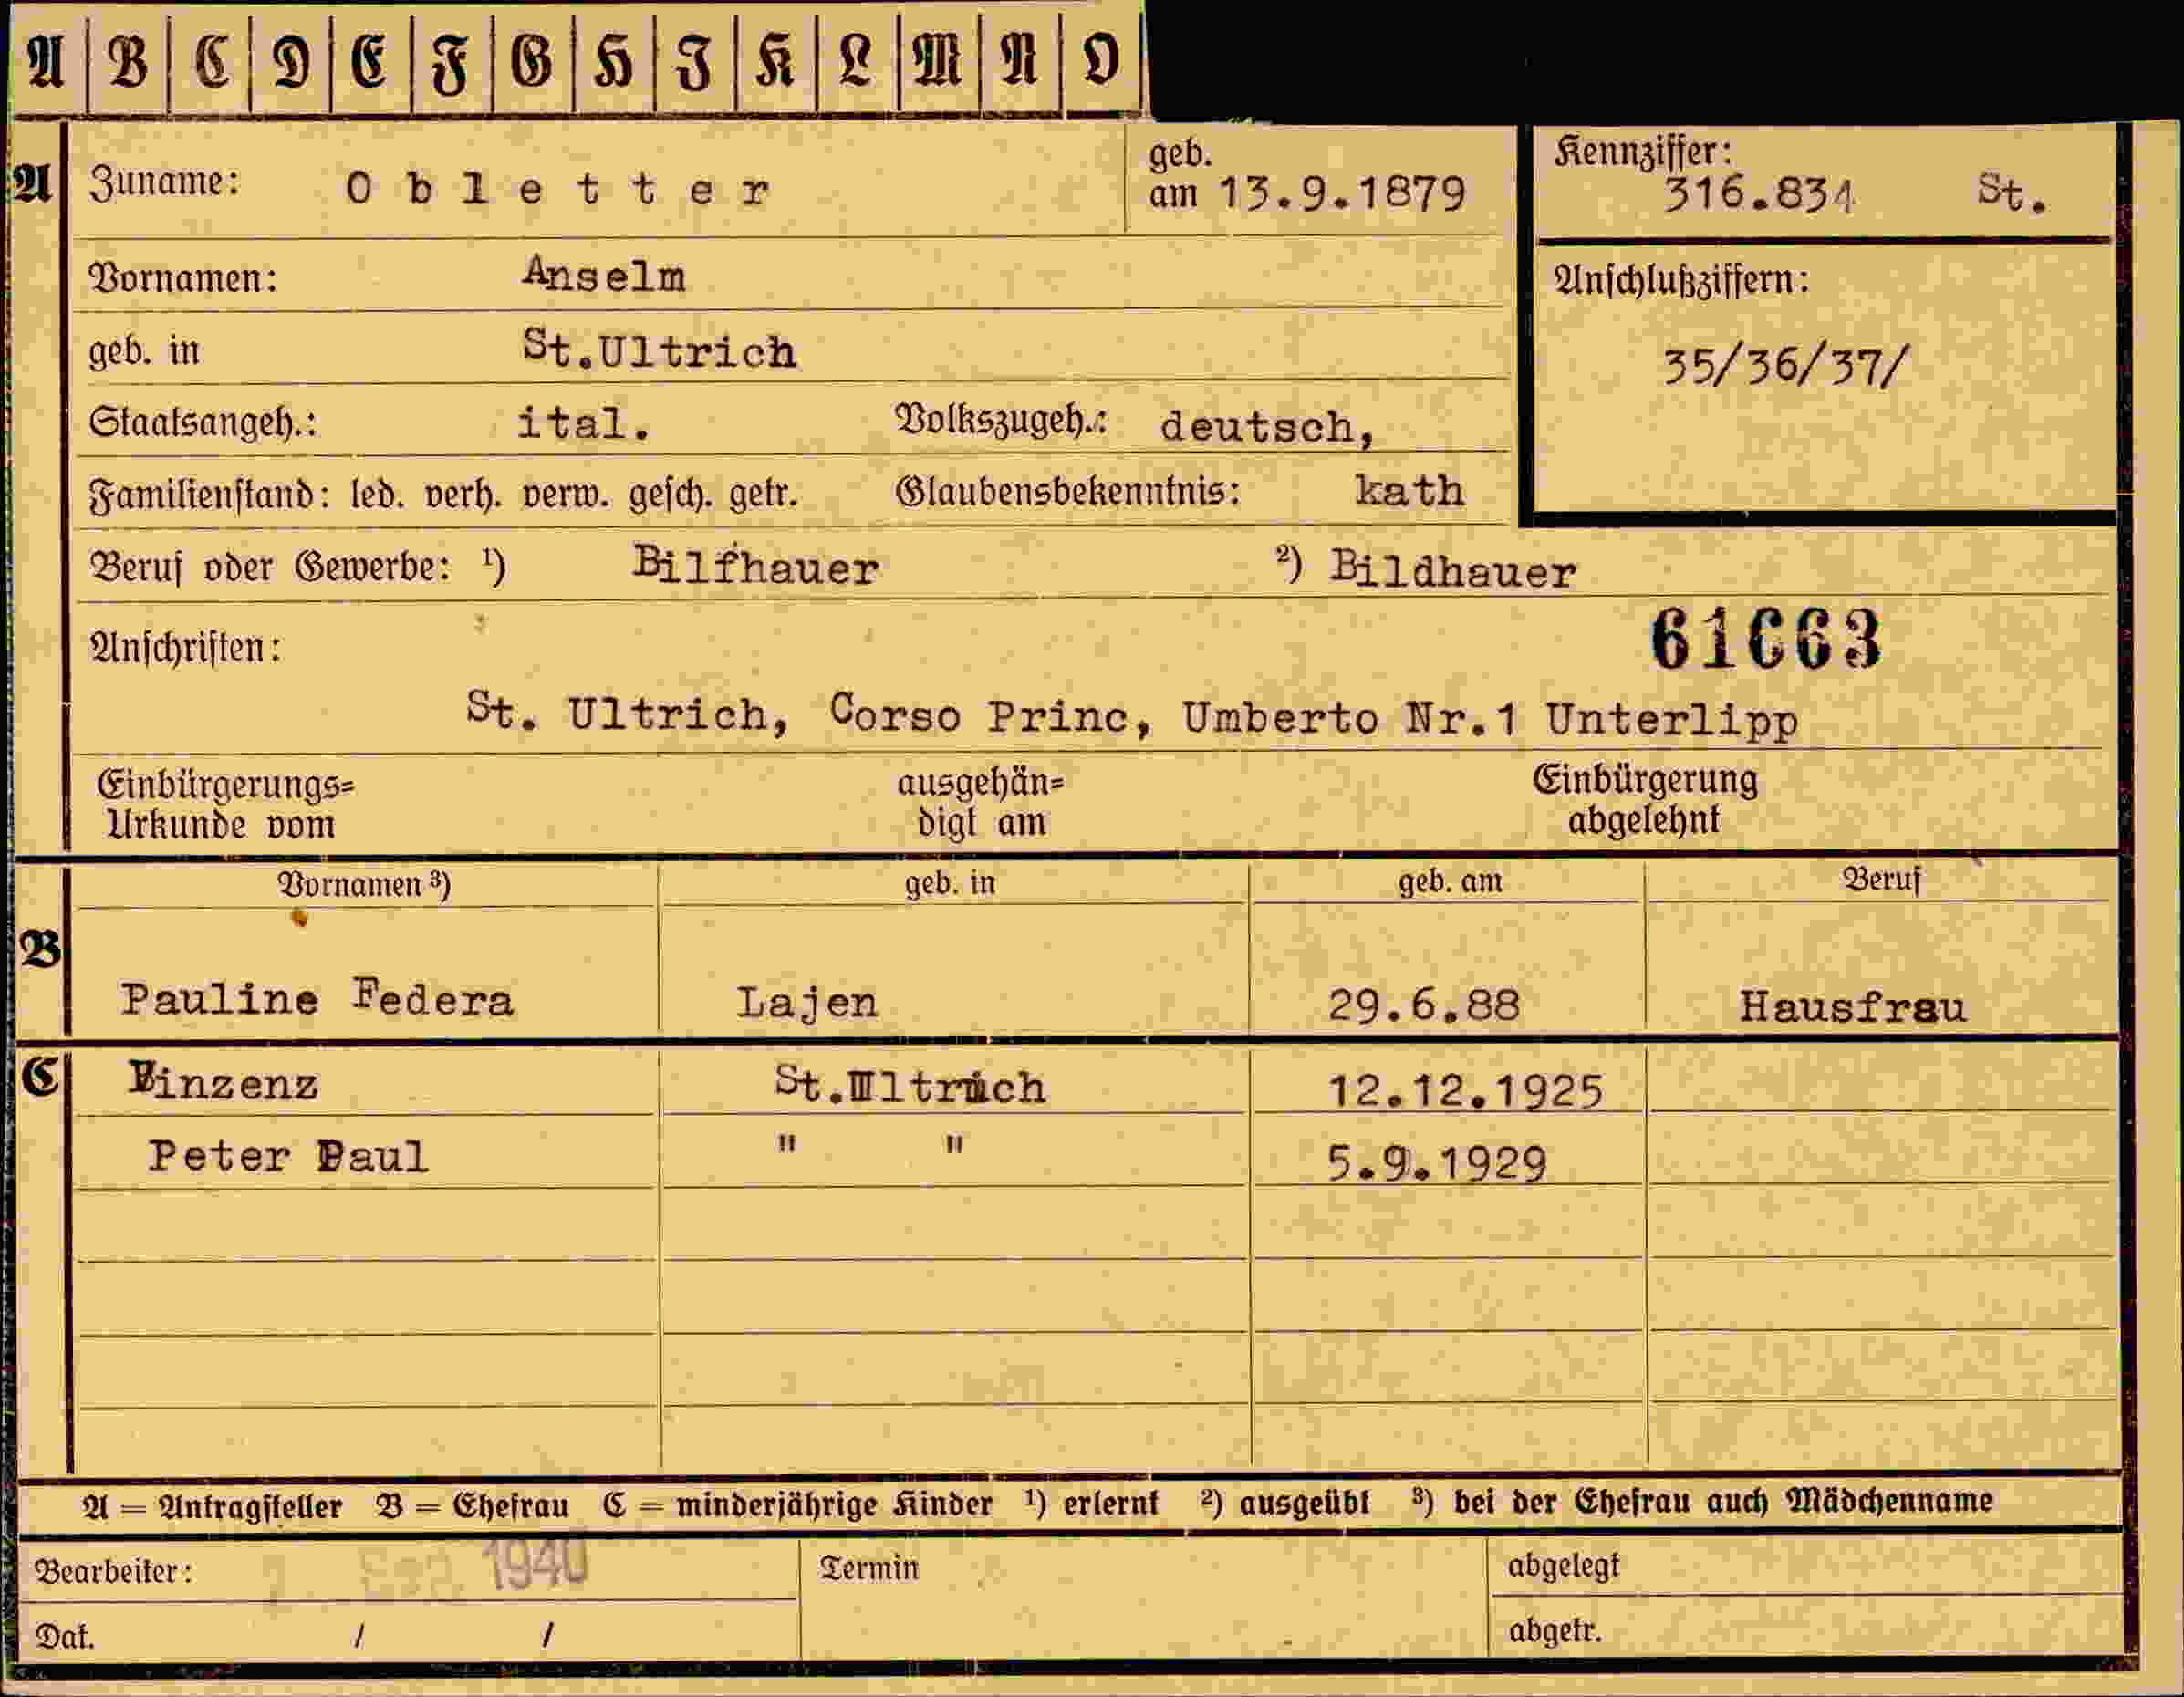 A B C D E F G H I K L M N O
A Zuname: Obletter geb. am 13.9.1879 Kennziffer: 316.834 St.
Vornamen: Anselm Anschlußziffern:
geb. in St.Ultrich 35/36/37/
Staatsangeh.: ital. Volkszugeh.: deutsch,
Familienstand: led. verh. verw. gesch. getr. Glaubensbekenntnis: kath
Beruf oder Gewerbe: ¹) Bilfhauer ²) Bildhauer
Anschriften: 61663
St. Ultrich, Corso Princ, Umberto Nr.1 Unterlipp
Einbürgerungs= ausgehän= Einbürgerung
Urkunde vom digt am abgelehnt
Vornamen ³) geb. in geb. am Beruf
B
Pauline Federa Lajen 29.6.88 Hausfrau
C Vinzenz St.Ultrich 12.12.1925
Peter Paul " " 5.9.1929
A = Antragsteller B = Ehefrau C = minderjährige Kinder ¹) erlernt ²) ausgeübt ³) bei der Ehefrau auch Mädchenname
Bearbeiter: Sep. 1940 Termin abgelegt
Dat. / / abgetr.